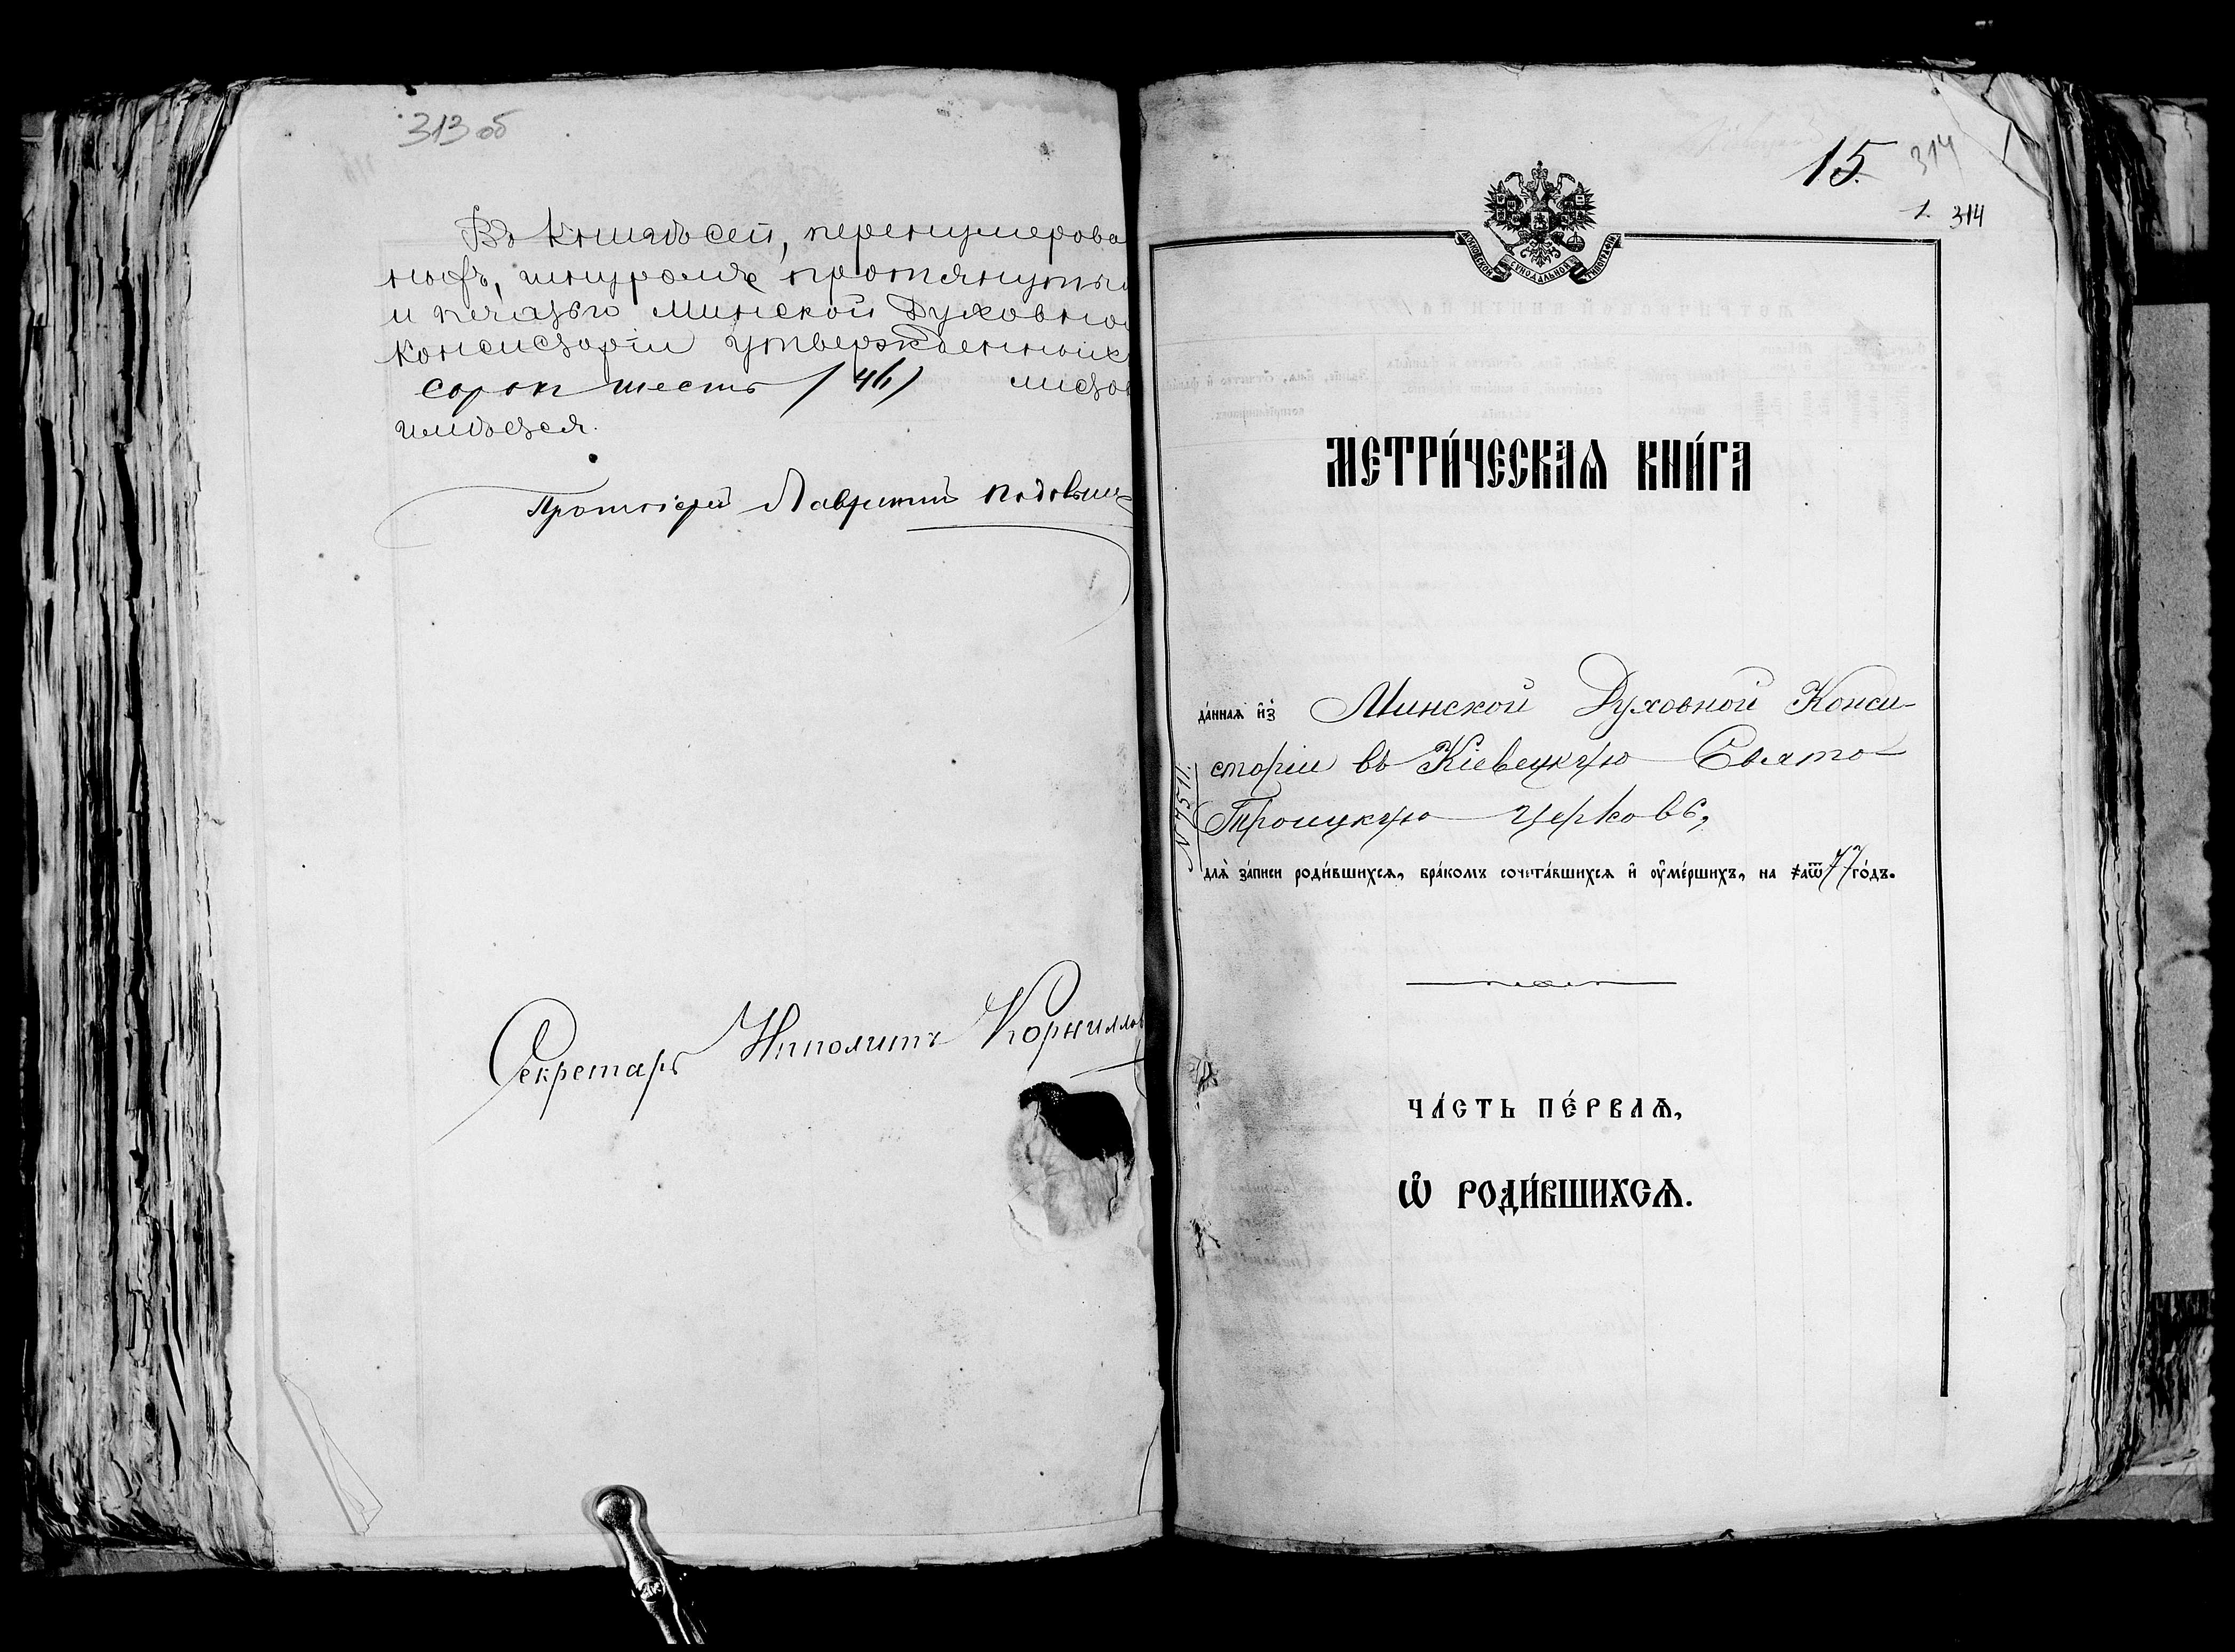 313 об
Въ книгѣ сей, перенумерова
ныхъ, шнуромъ протянуты
и печатью Минской Духовно
Консисторіи утвержденныхъ
сорок шесть / 46 / листо
имѣется.
Протоіерей Лаврентій
Секретарь Ипполитъ Корнилло
15. 314
1. 314
МОСКОВСКОЙ СѴНОДАЛЬНОЙ ТИПОГРАФІИ
МЕТРИ́ЧЕСКАѦ КНИ́ГА
да́ннаѧ и҆з̾ Минской Духовной Конси-
сторіи въ Кіевецкую Свято-
Троицкую церковь,
№ 7511.
длѧ̀ за́писи роди́вшихсѧ, бра́комъ сочета́вшихсѧ и҆ ᲂу҆ме́ршихъ, на ҂аѿ77 го́дъ.
ЧА́СТЬ ПЕ́РВАѦ,
Ѽ РОДИ́ВШИХСѦ.